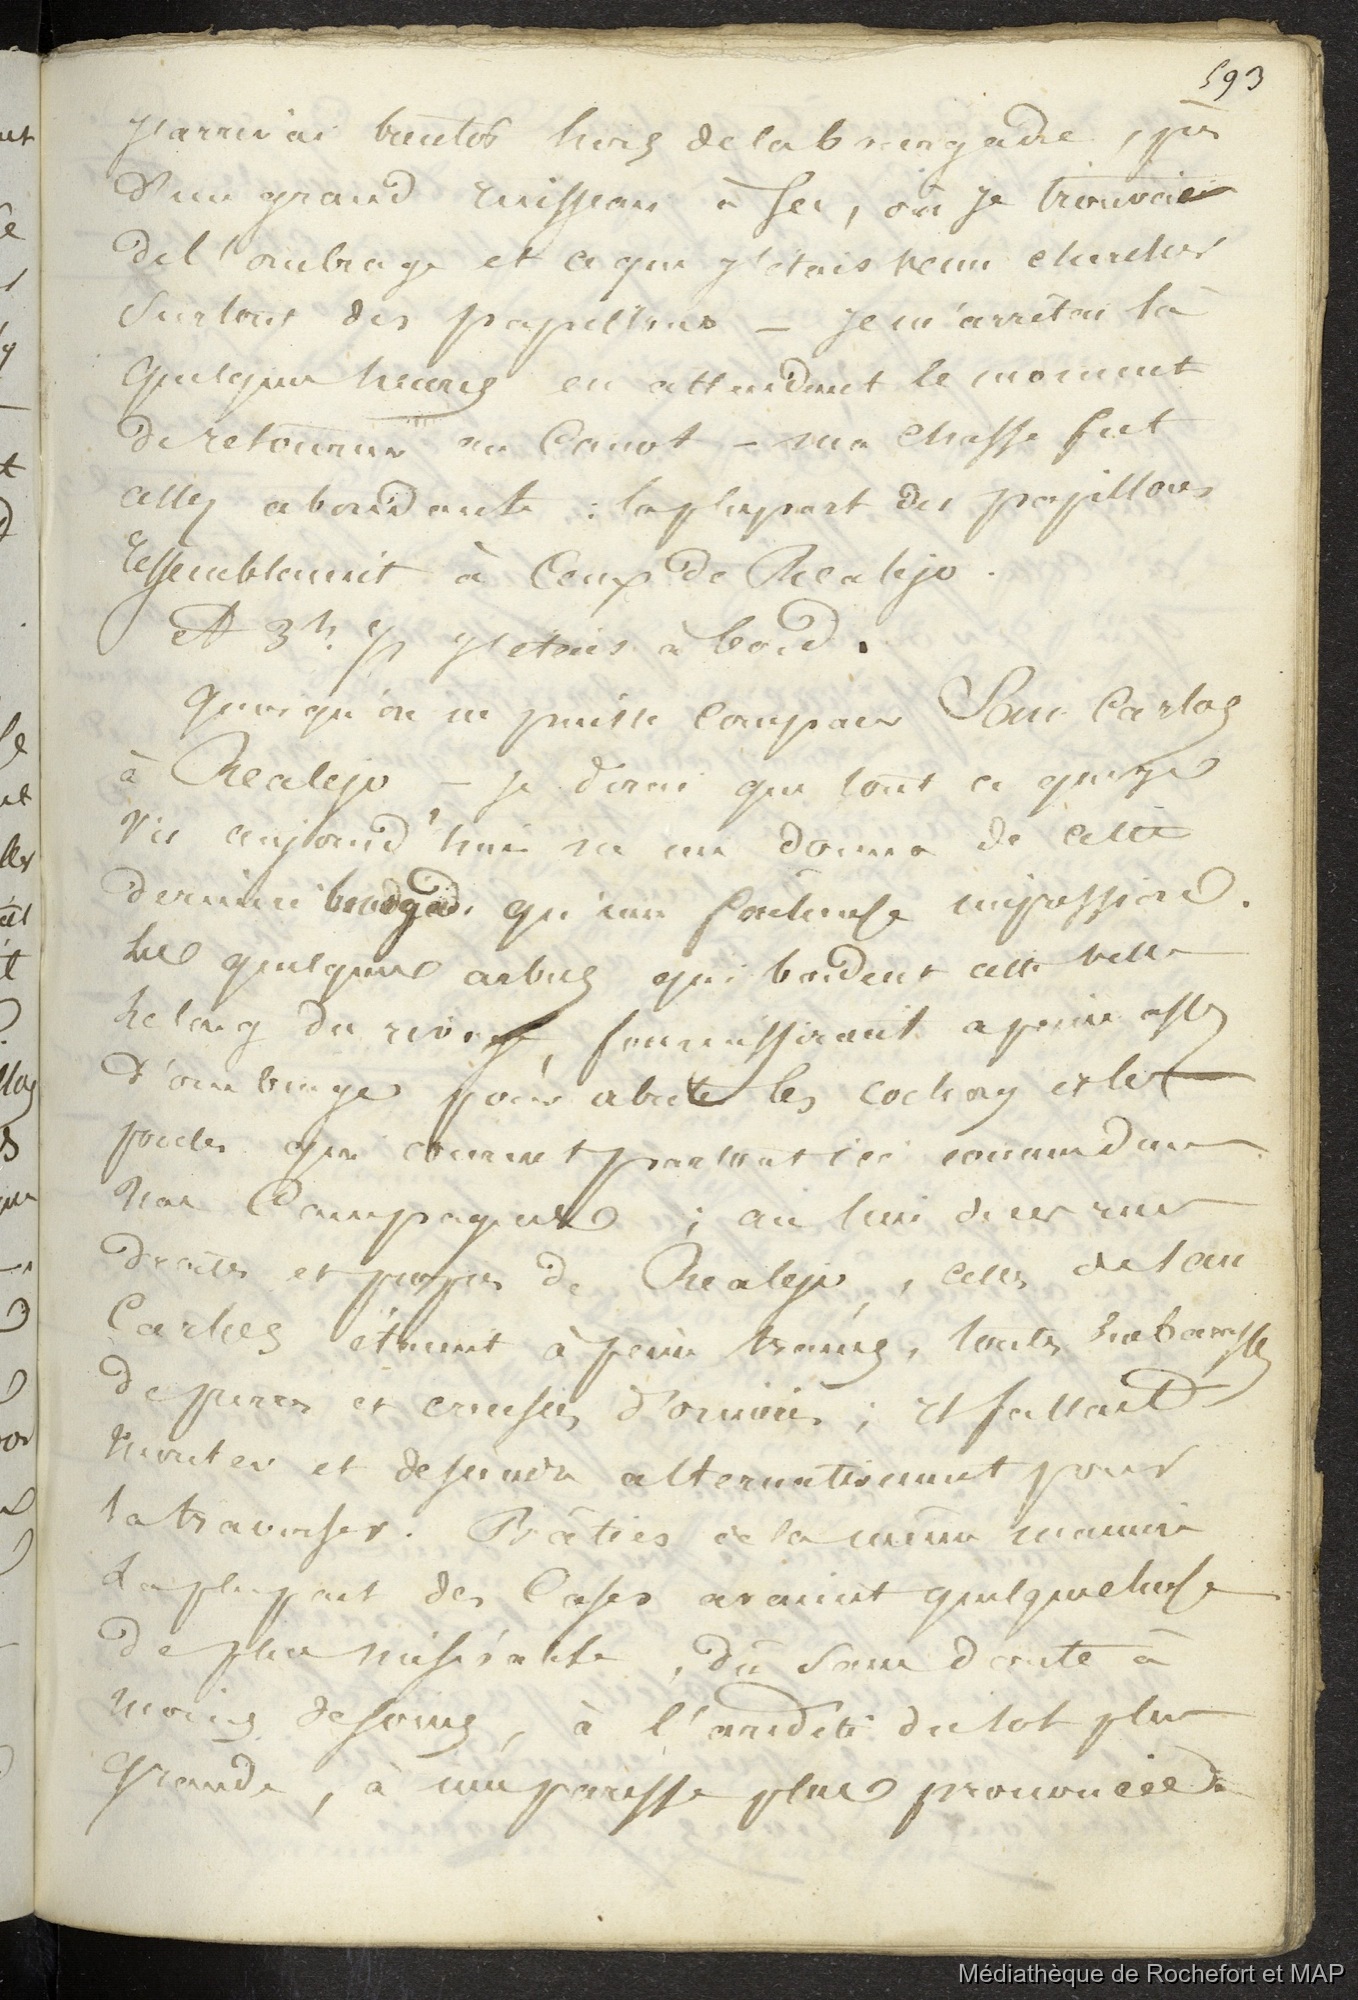 593
J'arrivai bientôt hors de la bourgade, près
d'un grand ruisseau à sec, où je trouvai
de l'ombrage et ce que j'étais venu chercher
surtout des papillons — je m'arrêtai là
quelques heures en attendant le moment
de retourner au canot — ma chasse fut
assez abondante : la plupart des papillons
ressemblaient à ceux de Realejo.
A 3h. ½ j'étais à bord.
Quoiqu'on ne puisse comparer San Carlos
à Realejo — je dirai que tout ce que je
vis aujourd'hui ne me donna de cette
dernière bourgade qu'une fâcheuse impression.
Les quelques arbres qui bordent cette ville
le long du rivage, fournissaient à peine assez
d'ombrage pour abriter les cochons et les
poules qui courent partout ici comme dans
nos campagnes ; au lieu de ces rues
droites et propres de Realejo, celles de San
Carlos étaient à peine tracées, toutes embarrassées
de pierres et creusées d'ornières ; il fallait
monter et descendre alternativement pour
la traverser. Bâties de la même manière
la plupart des cases avaient quelque chose
de plus misérable, dû sans doute à
moins de soins, à l'aridité du sol plus
grande, à une paresse plus prononcée de
Médiathèque de Rochefort et MAP